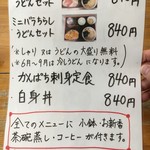 うどんセット 840円
ミニバラちらし
うどんセット 840円
＊しゃり又はうどんの大盛り無料
＊6月〜9月は冷しうどんになります。
かんぱち刺身定食 840円
白身丼 840円
全てのメニューに小鉢・お新香
茶碗蒸し・コーヒーが付きます。